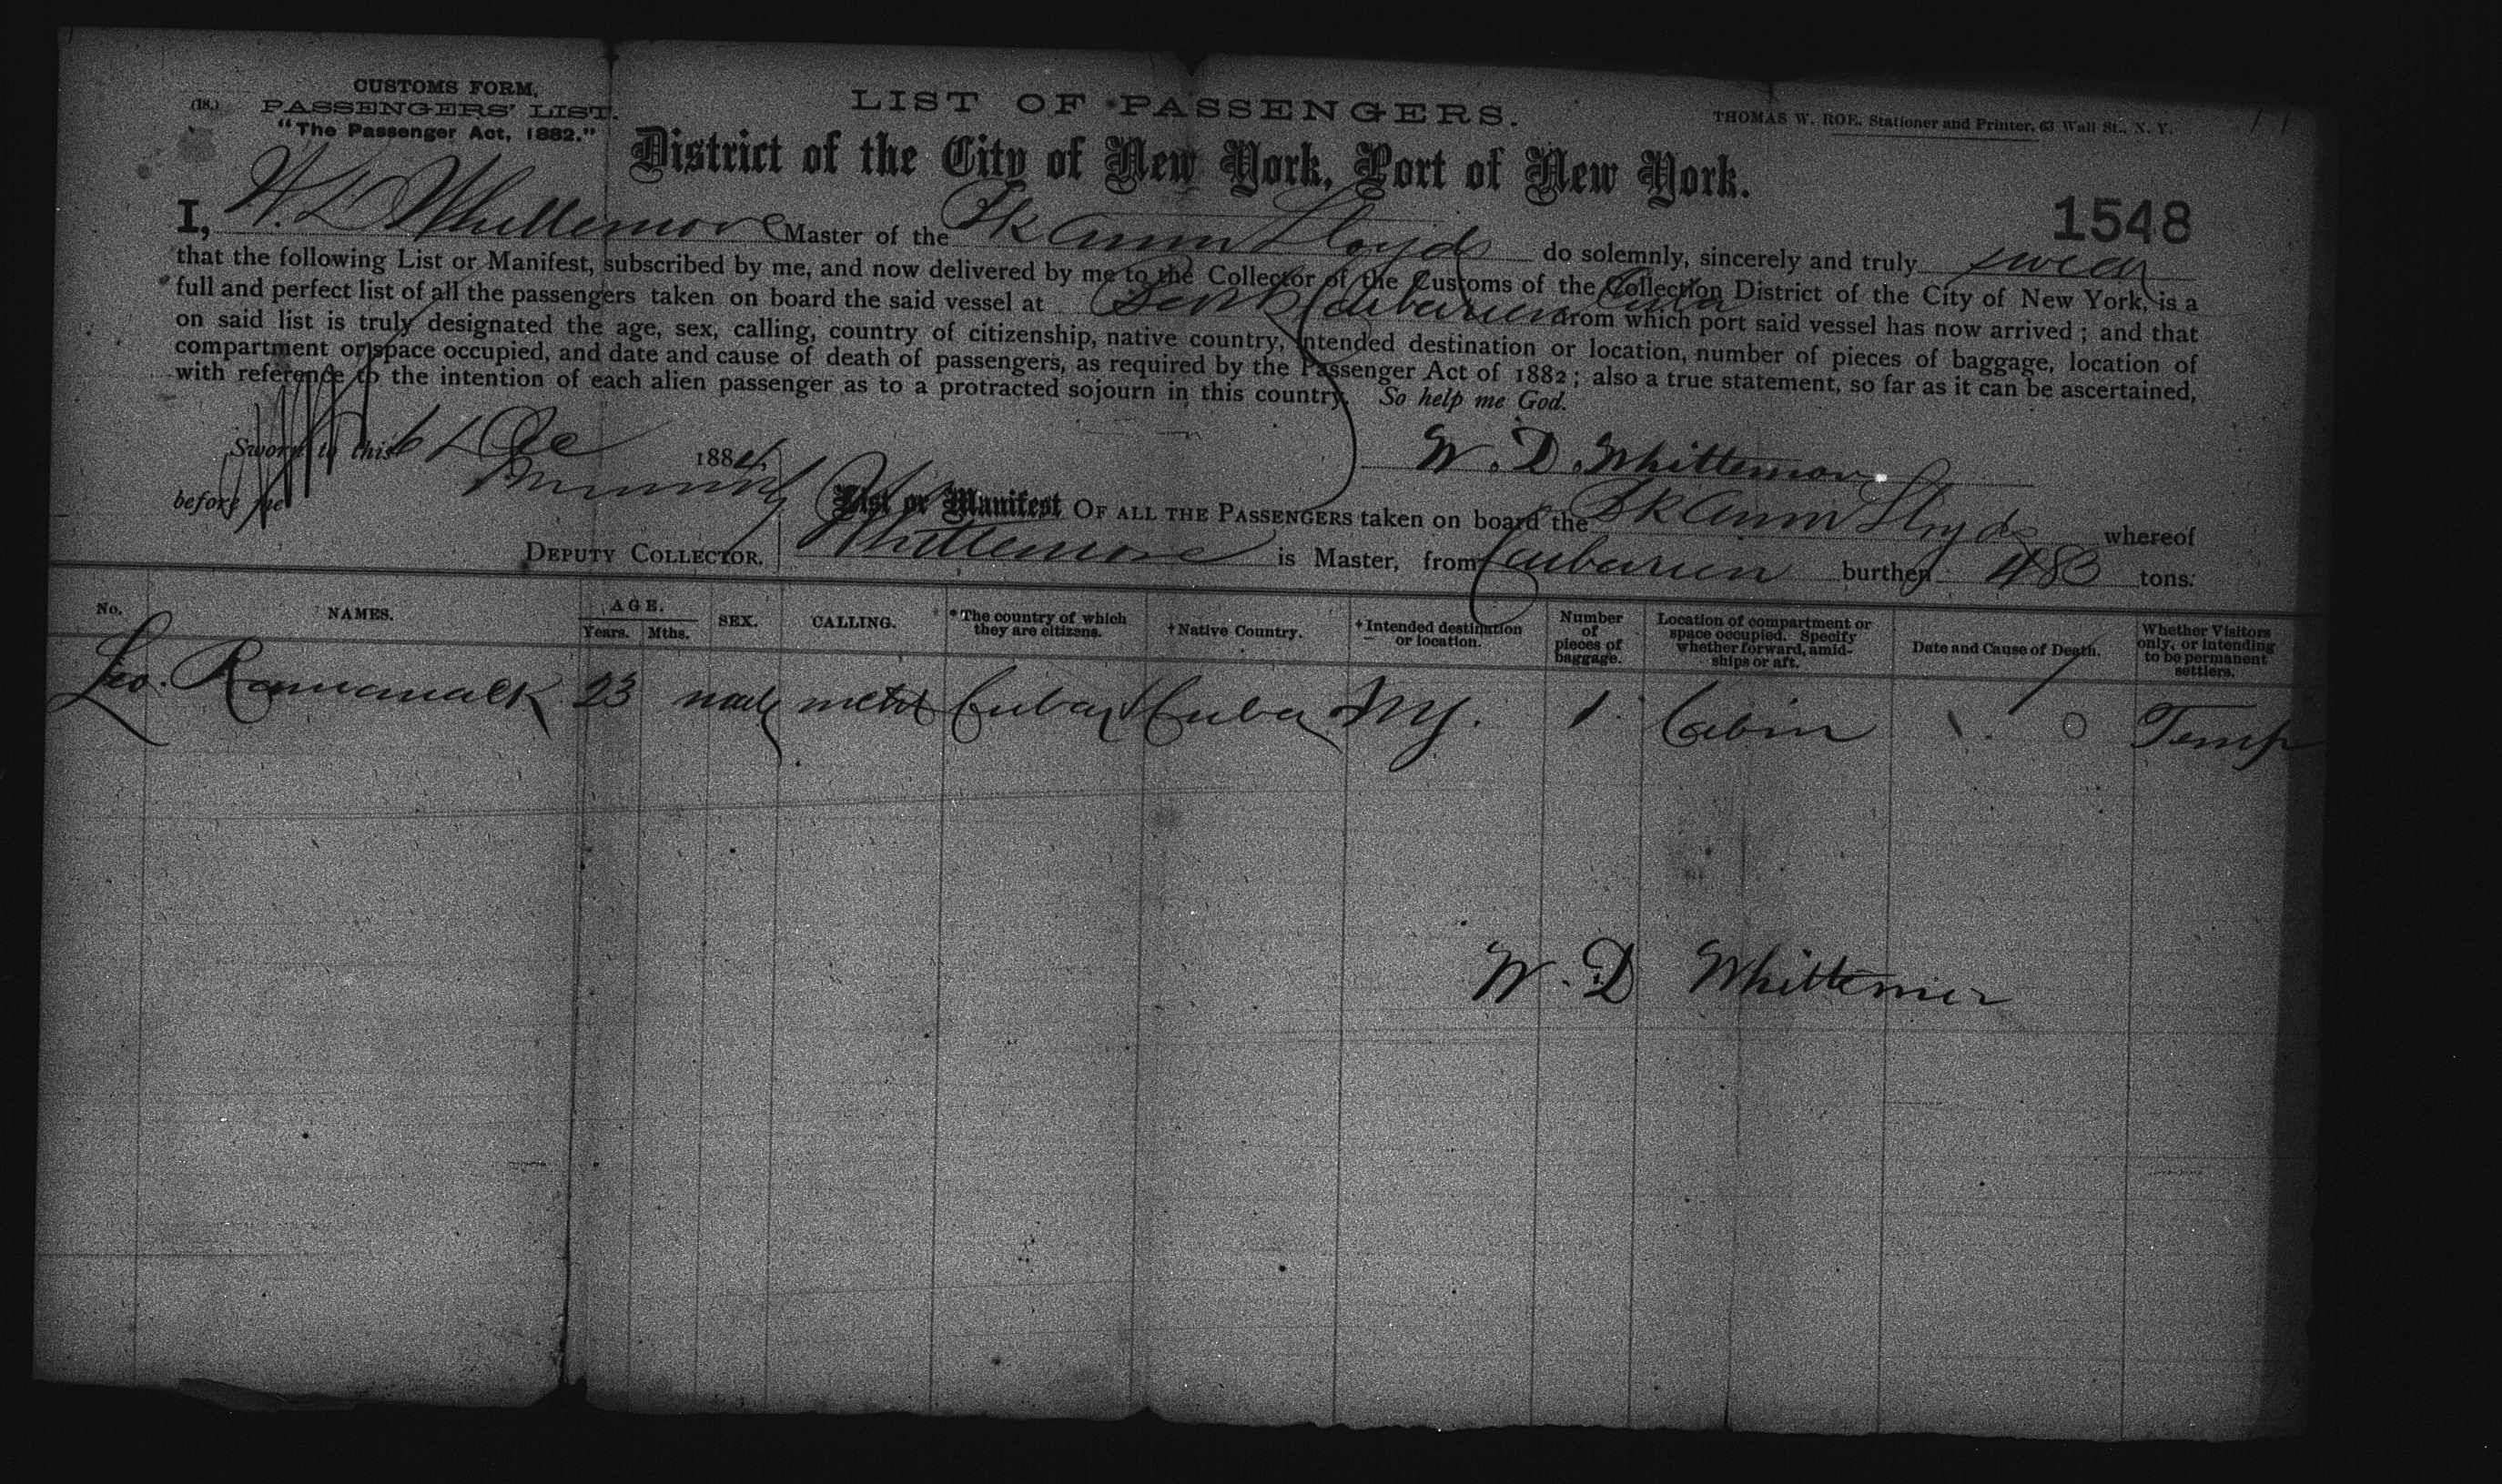 CUSTOMS FORM,
(18.) PASSENGERS' LIST.
"The Passenger Act, 1882."
LIST OF PASSENGERS.
THOMAS W. ROE, Stationer and Printer, 63 Wall St., N. Y.
District of the City of New York, Port of New York.
1548
I, W. D. Whittemore Master of the Bk Ann Lloyds do solemnly, sincerely and truly swear
that the following List or Manifest, subscribed by me, and now delivered by me to the Collector of the Customs of the Collection District of the City of New York, is a
full and perfect list of all the passengers taken on board the said vessel at Caibarien Cuba from which port said vessel has now arrived; and that
on said list is truly designated the age, sex, calling, country of citizenship, native country, intended destination or location, number of pieces of baggage, location of
compartment or space occupied, and date and cause of death of passengers, as required by the Passenger Act of 1882; also a true statement, so far as it can be ascertained,
with reference to the intention of each alien passenger as to a protracted sojourn in this country. So help me God.
Sworn to this 6 Dec 1884
W. D. Whittemore
before me
List or Manifest OF ALL THE PASSENGERS taken on board the Bk Ann Lloyds whereof
DEPUTY COLLECTOR. Whittemore is Master, from Caibarien burthen 483 tons.
No. NAMES. AGE. Years. Mths. SEX. CALLING. *The country of which they are citizens. †Native Country. †Intended destination or location. Number of pieces of baggage. Location of compartment or space occupied. Specify whether forward, amidships or aft. Date and Cause of Death. Whether Visitors only, or intending to be permanent settlers.
23 male Cuba Cuba NY. 1 Cabin 0 Temp
W. D Whittemore